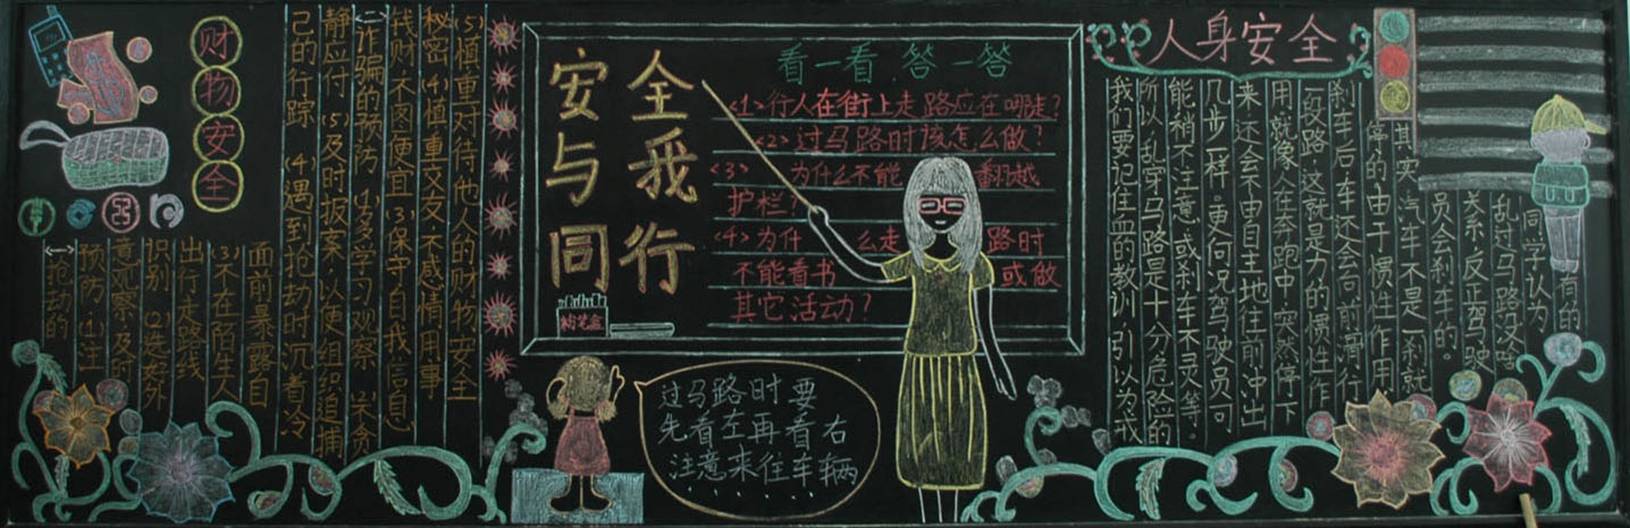 财物安全
(一)抢劫的
预防 (1)注
意观察,及时
识别 (2)选好外
出行走路线
(3)不在陌生人
面前暴露自
己的行踪 (4)遇到抢劫时沉着冷
静应付 (5)及时报案,以便组织追捕
(二)诈骗的预防 (1)多学习观察 (2)不贪
钱财不图便宜 (3)保守自我信息
秘密 (4)慎重交友,不感情用事
(5)慎重对待他人的财物安全
安全
与我
同行
粉笔盒
看一看 答一答
<1>行人在街上走路应在哪走?
<2>过马路时该怎么做?
<3>为什么不能翻越
护栏?
<4>为什么走路时
不能看书或做
其它活动?
过马路时要
先看左再看右
注意来往车辆
人身安全
有的
同学认为
乱过马路没啥
关系,反正驾驶
员会刹车的。
其实,汽车不是一刹就
停的,由于惯性作用
刹车后,车还会向前滑行
一段路,这就是力的惯性作
用,就像人在奔跑中突然停下
来,还会不由自主地往前冲出
几步一样。更何况驾驶员可
能稍不注意,或刹车不灵等。
所以,乱穿马路是十分危险的
我们要记住血的教训 引以为戒